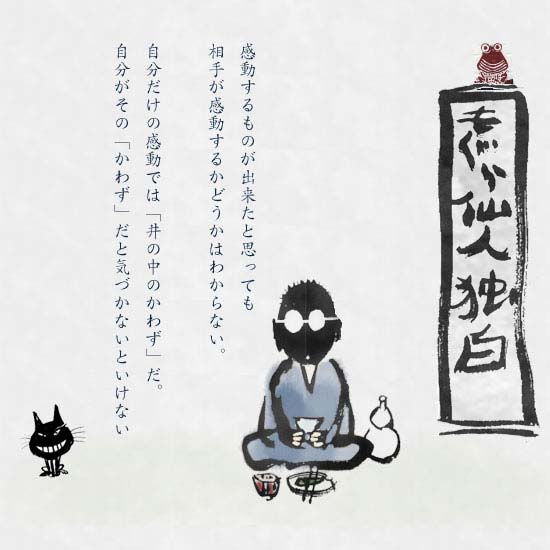 仙人独白
感動するものが出来たと思っても
相手が感動するかどうかはわからない。
自分だけの感動では「井の中のかわず」だ。
自分がその「かわず」だと気づかないといけない